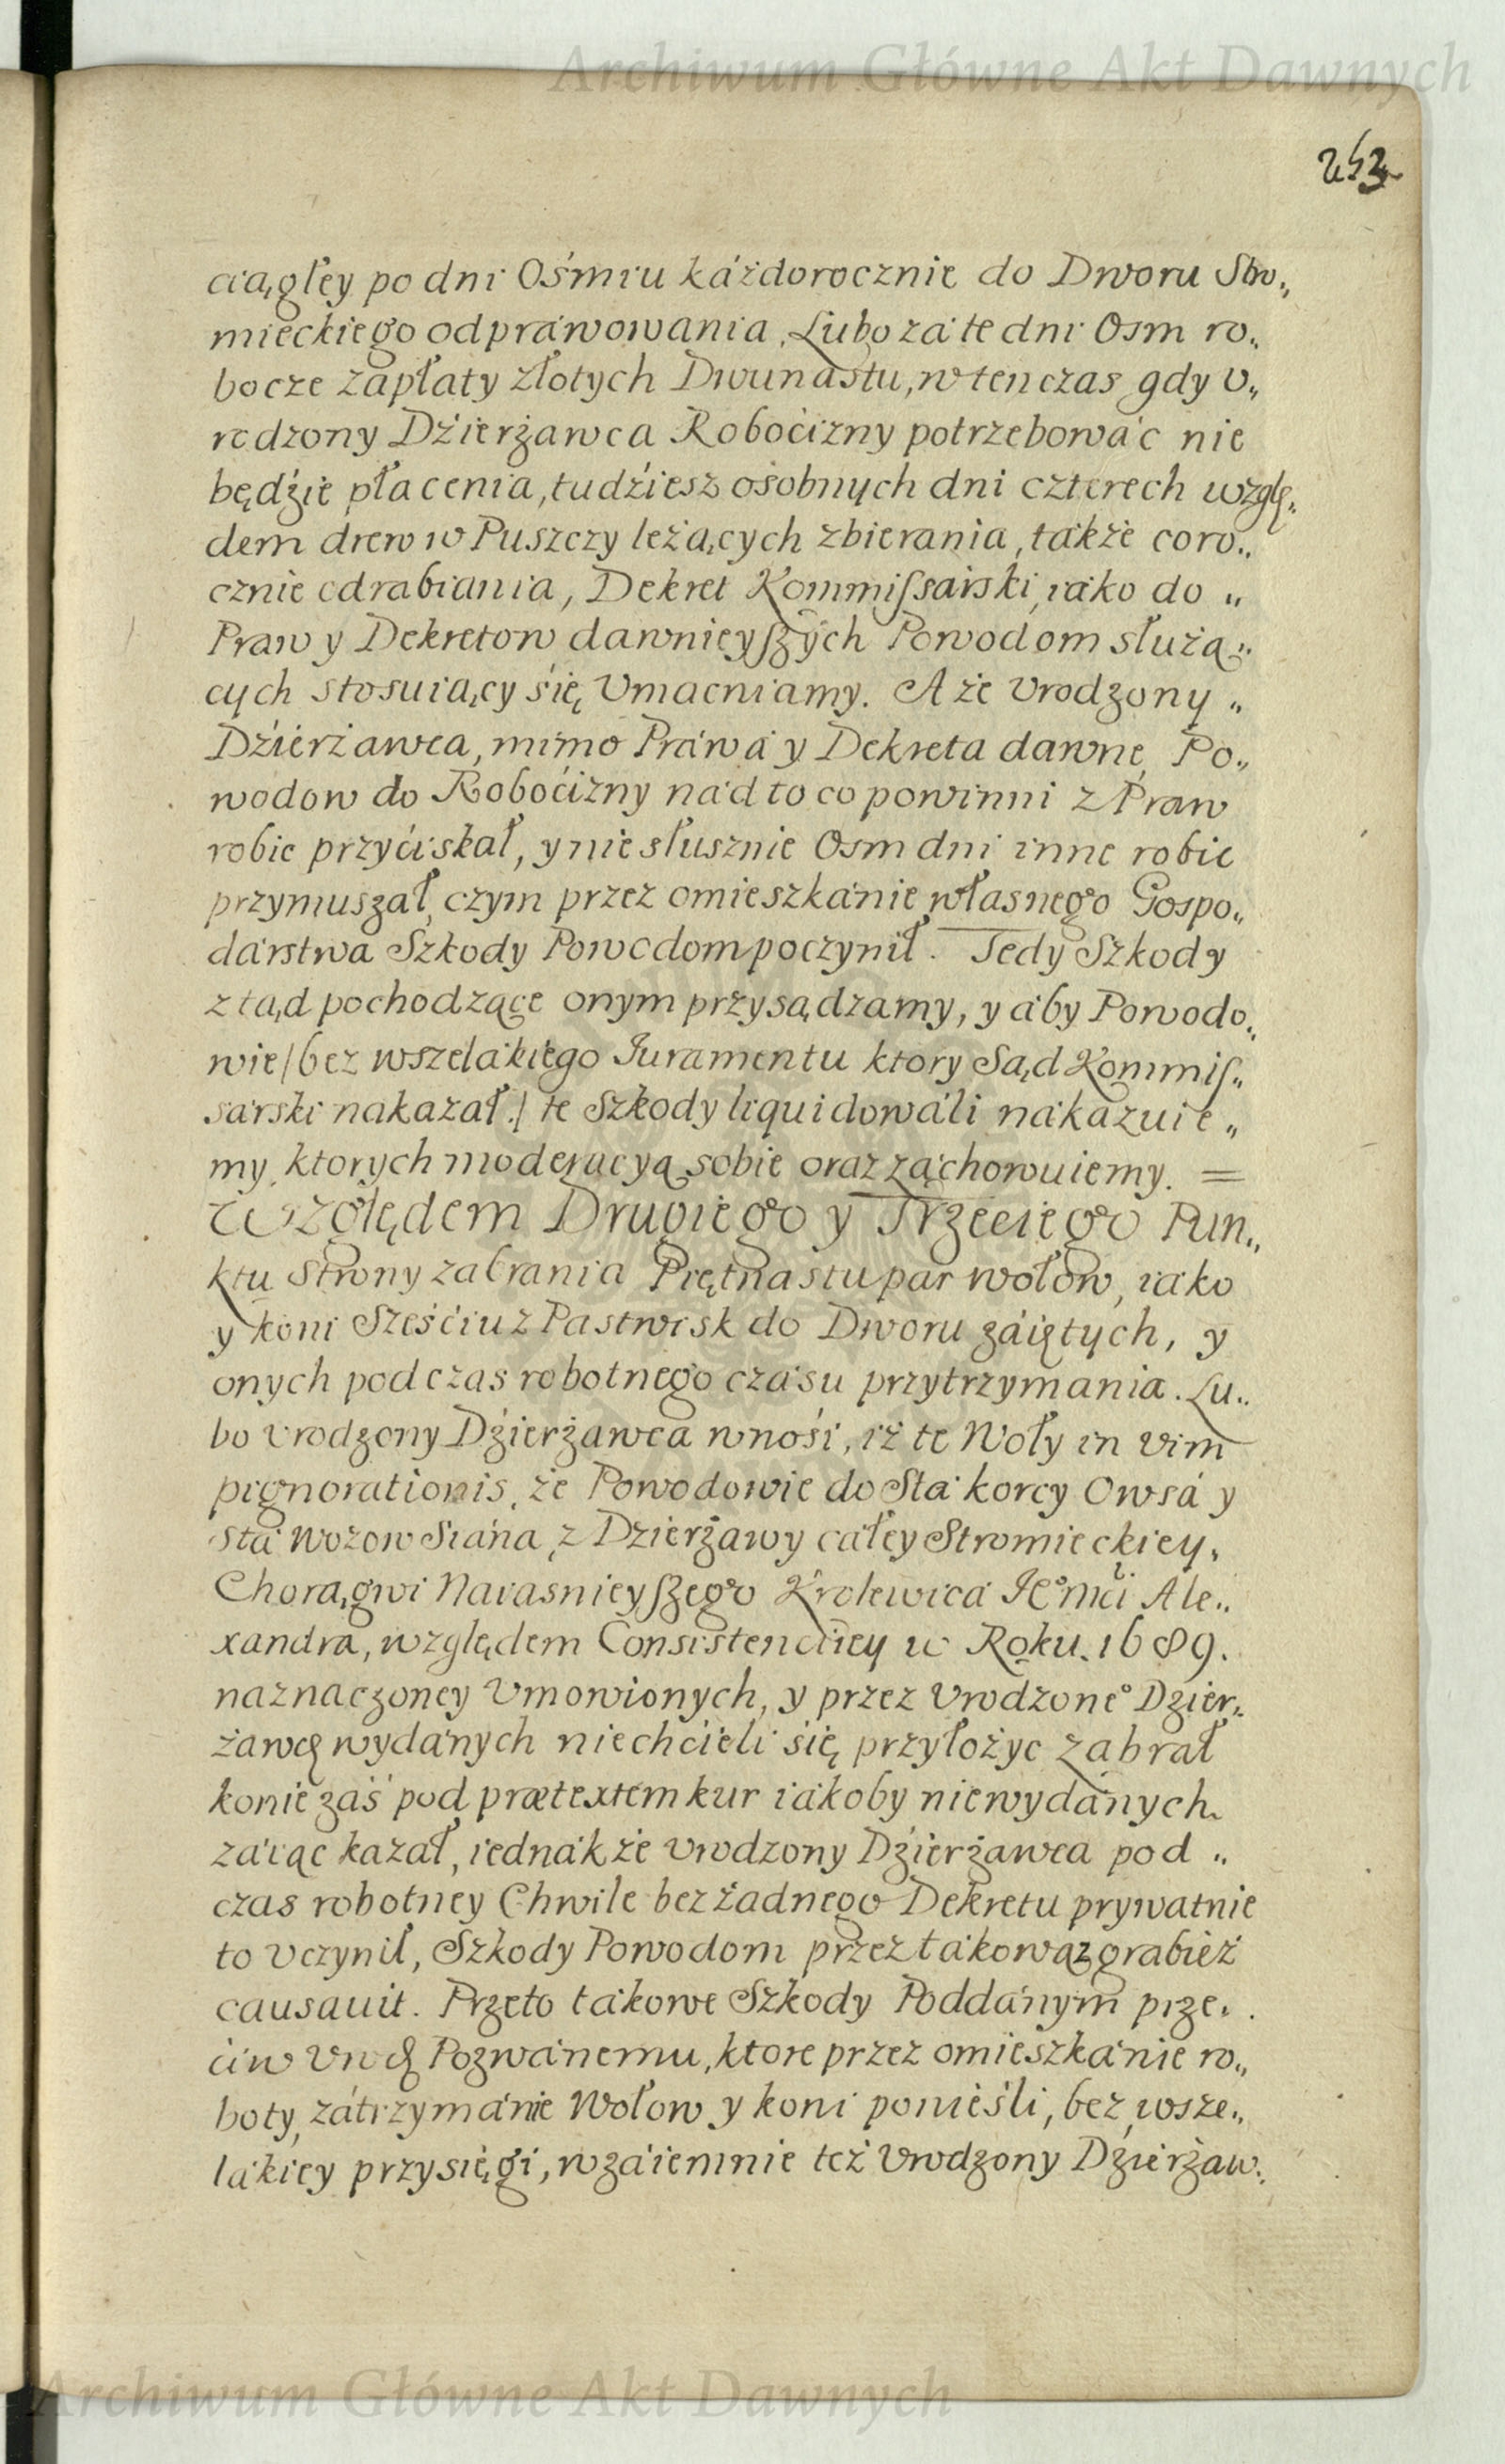 Archiwum Główne Akt Dawnych
253
ciągłey po dni Ośmiu káżdorocznie do Dworu Stro„
mieckiego odpráwowania, Lubo zá te dni Osm ro„
bocze zapłaty złotych Dwunastu, w ten czas gdy V„
rodzony Dźierżawca Roboćizny potrzebowáć nie
będźie płacenia, tudźiesz osobnych dni czterech wzglę„
dem drew w Puszczy leżących zbierania, tákże coro„
cznie odrabiania, Dekret Kommiſsarski, iáko do „
Praw y Dekretow dawnieyſzych Powodom służą„
cych stosuiący się Vmacniamy. A że Vrodzony „
Dźierżawca, mimo Práwá y Dekreta dawne, Po„
wodow do Roboćizny nád to co powinni z Praw
robic przyćiskał, y niesłusznie Osm dni inne robic
przymuszał, czym przez omieszkánie własnego Gospo„
dárstwa Szkody Powodom poczynił. Tedy Szkody
ztąd pochodzące onym przysądzamy, y áby Powodo„
wie / bez wszelákiego Iuramentu ktory Sąd Kommiſ„
sárski nakazał / te Szkody liquidowáli nákázuie„
my, ktorych moderacyą sobie oraz záchowuiemy. =
Względem Drugiego y Trzeciego Pun„
ktu Strony zabrania Piętnastu par wołow, iáko
y koni Sześćiu z Pastwisk do Dworu záiętych, y
onych podczas robotnego czásu przytrzymánia. Lu„
bo Vrodzony Dźierżawca wnośi, iż te Woły in vim
pignorationis, że Powodowie do Stá korcy Owsá y
Stá Wozow Siána, z Dzierżawy całey Stromieckiey,
Chorągwi Naiásnieyſzego Krolewica Ie͠o Mći Ale„
xandra, względem Consistentiey w Roku 1689.
naznaczoney Vmowionych, y przez Vrodzone͠o Dzier„
żawcę wydánych niechćieli się przyłożyc zabrał
konie záś pod prætextem kur iákoby niewydánych
záiąc kazał, iednákże Vrodzony Dźierżawca pod „
czas robotney Chwile bez żadnego Dekretu prywatnie
to Vczynił, Szkody Powodom przez tákową zgrabież
causauit. Przeto tákowe Szkody Poddánym prze„
ćiw Vrodz Pozwánemu, ktore przez omieszkánie ro„
boty, zátrzymánie Wołow y koni ponieśli, bez wsze„
lákiey przysięgi, wzáiemnie też Vrodzony Dźierżaw„
Archiwum Główne Akt Dawnych